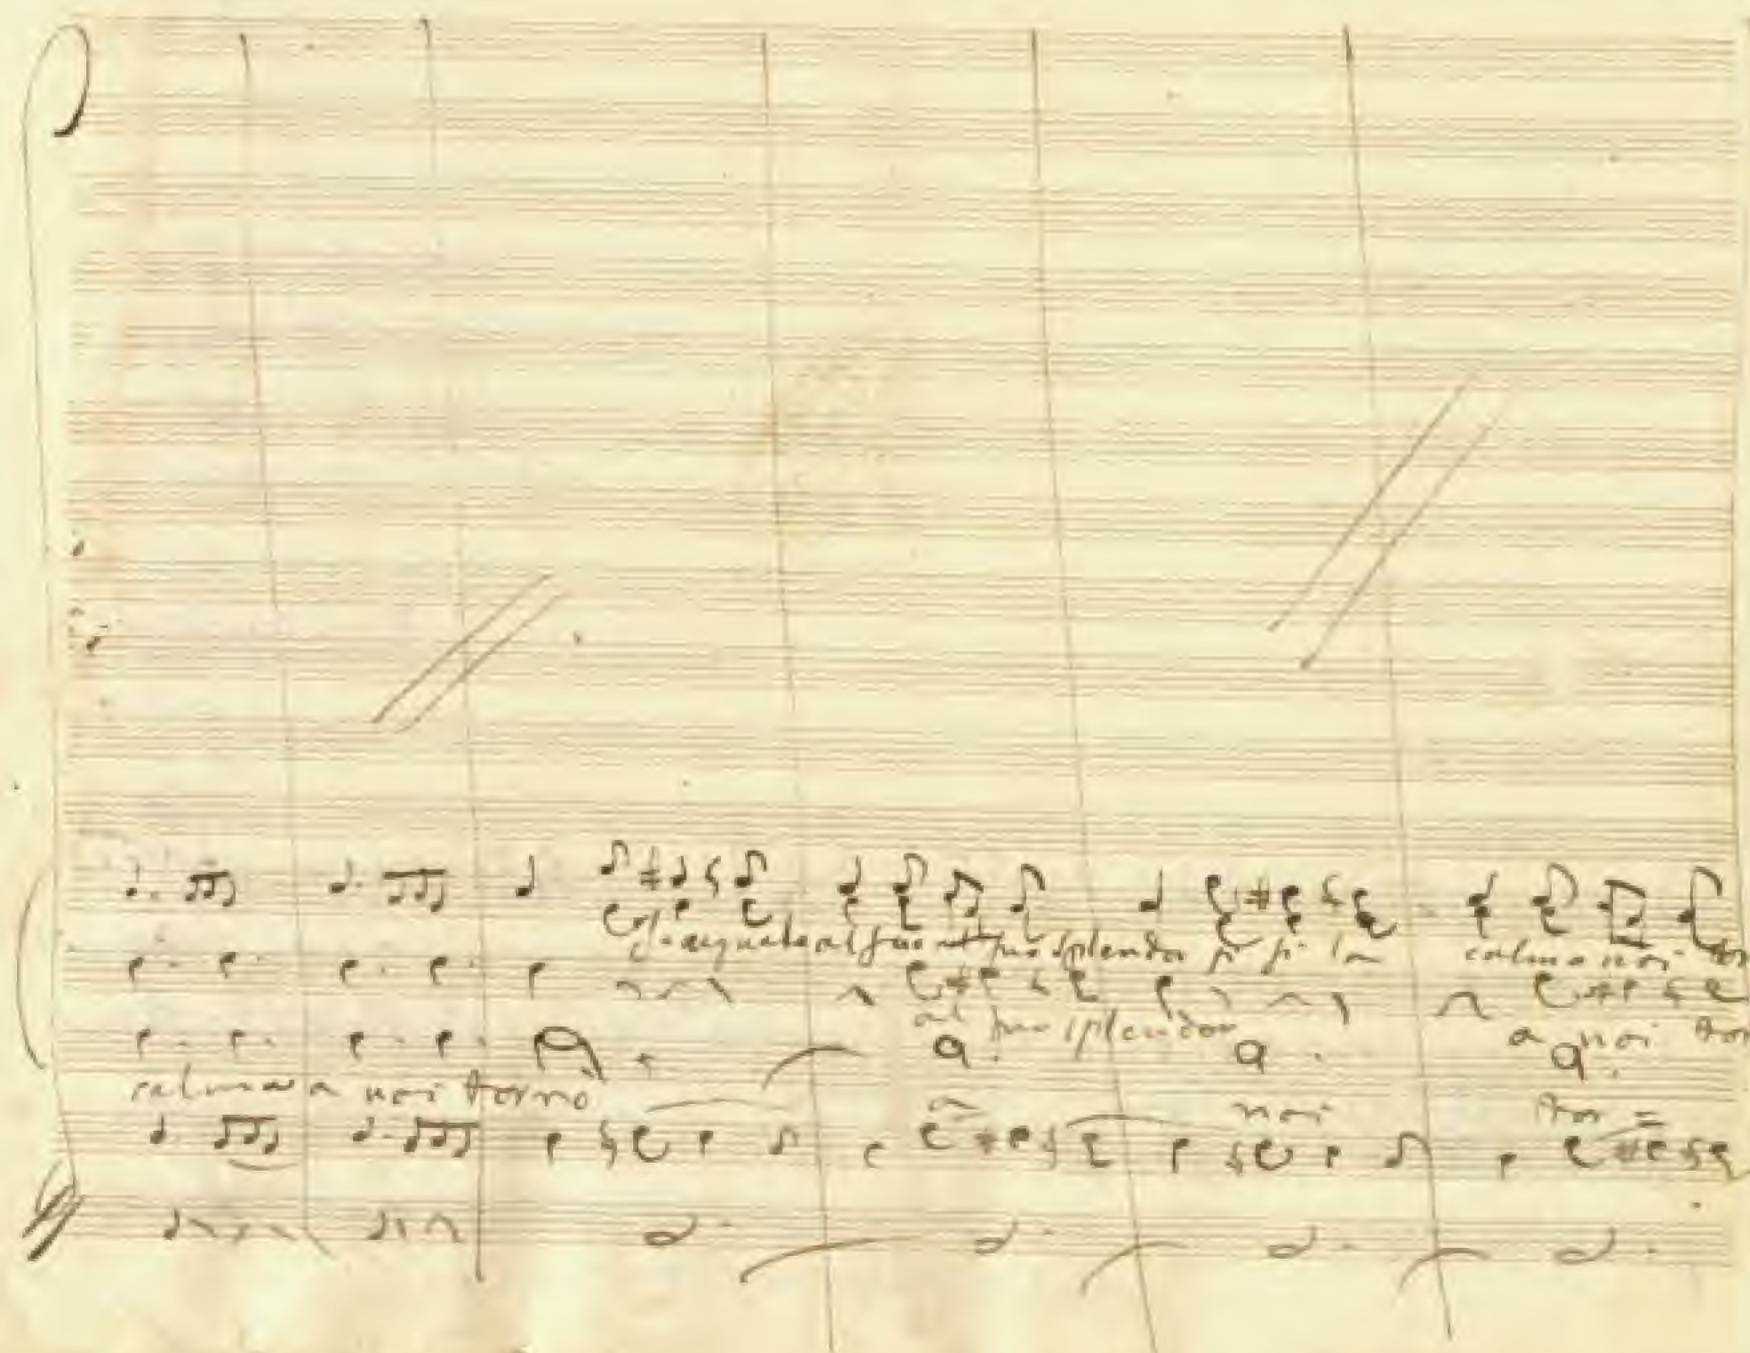 al tuo splendor si si la calma a noi
al tuo splendor
a noi tor
calma a noi tornò
a noi tor =